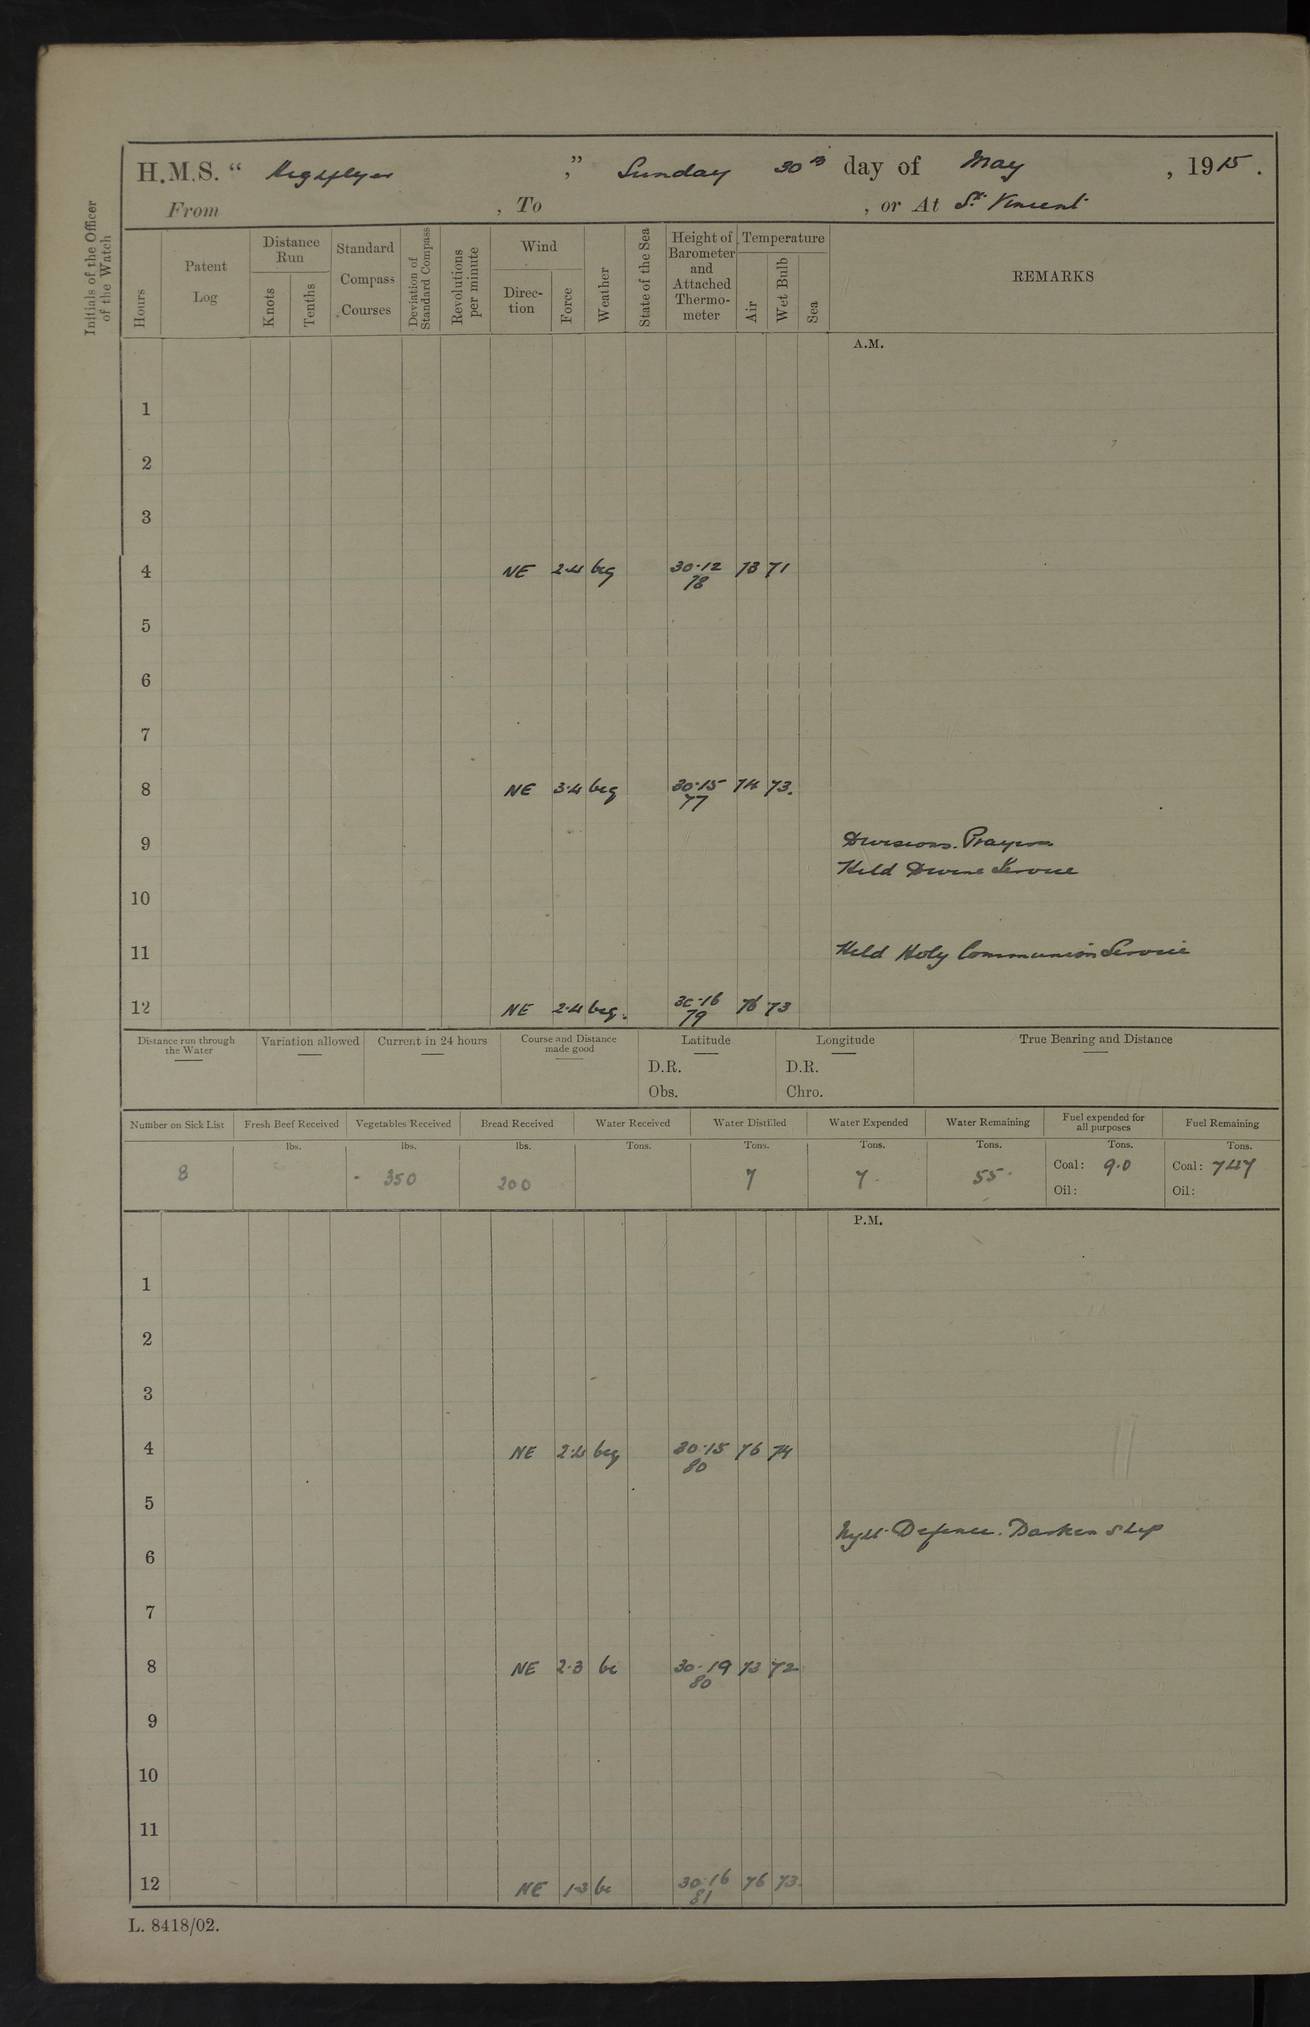 H.M.S. “ Highflyer ” Sunday 30th day of May , 1915.
From , To , or At St. Vincent
Initials of the Officer of the Watch
Hours
Patent Log
Distance Run
Knots
Tenths
Standard Compass Courses
Deviation of Standard Compass
Revolutions per minute
Wind
Direction
Force
Weather
State of the Sea
Height of Barometer and Attached Thermometer
Temperature
Air
Wet Bulb
Sea
REMARKS
A.M.
1
2
3
4 NE 2·4 bcq 30·12 73 71
78
5
6
7
8 NE 3·4 bcq 30·15 74 73.
77
9 Divisions. Prayers
Held Divine Service
10
11 Held Holy Communion Service
12 NE 2·4 bcq. 30·16 76 73
79
Distance run through the Water
Variation allowed
Current in 24 hours
Course and Distance made good
Latitude
D.R.
Obs.
Longitude
D.R.
Chro.
True Bearing and Distance
Number on Sick List Fresh Beef Received Vegetables Received Bread Received Water Received Water Distilled Water Expended Water Remaining Fuel expended for all purposes Fuel Remaining
lbs. lbs. lbs. Tons. Tons. Tons. Tons. Tons. Tons.
8 350 200 7 7 55 Coal: 9·0 Coal: 747
Oil: Oil:
P.M.
1
2
3
4 NE 2·4 bcq 30·15 76 74
80
5
Night Defence. Darken Ship
6
7
8 NE 2·3 bc 30·19 73 72
80
9
10
11
12 NE 1·3 bc 30·16 76 73.
81
L. 8418/02.